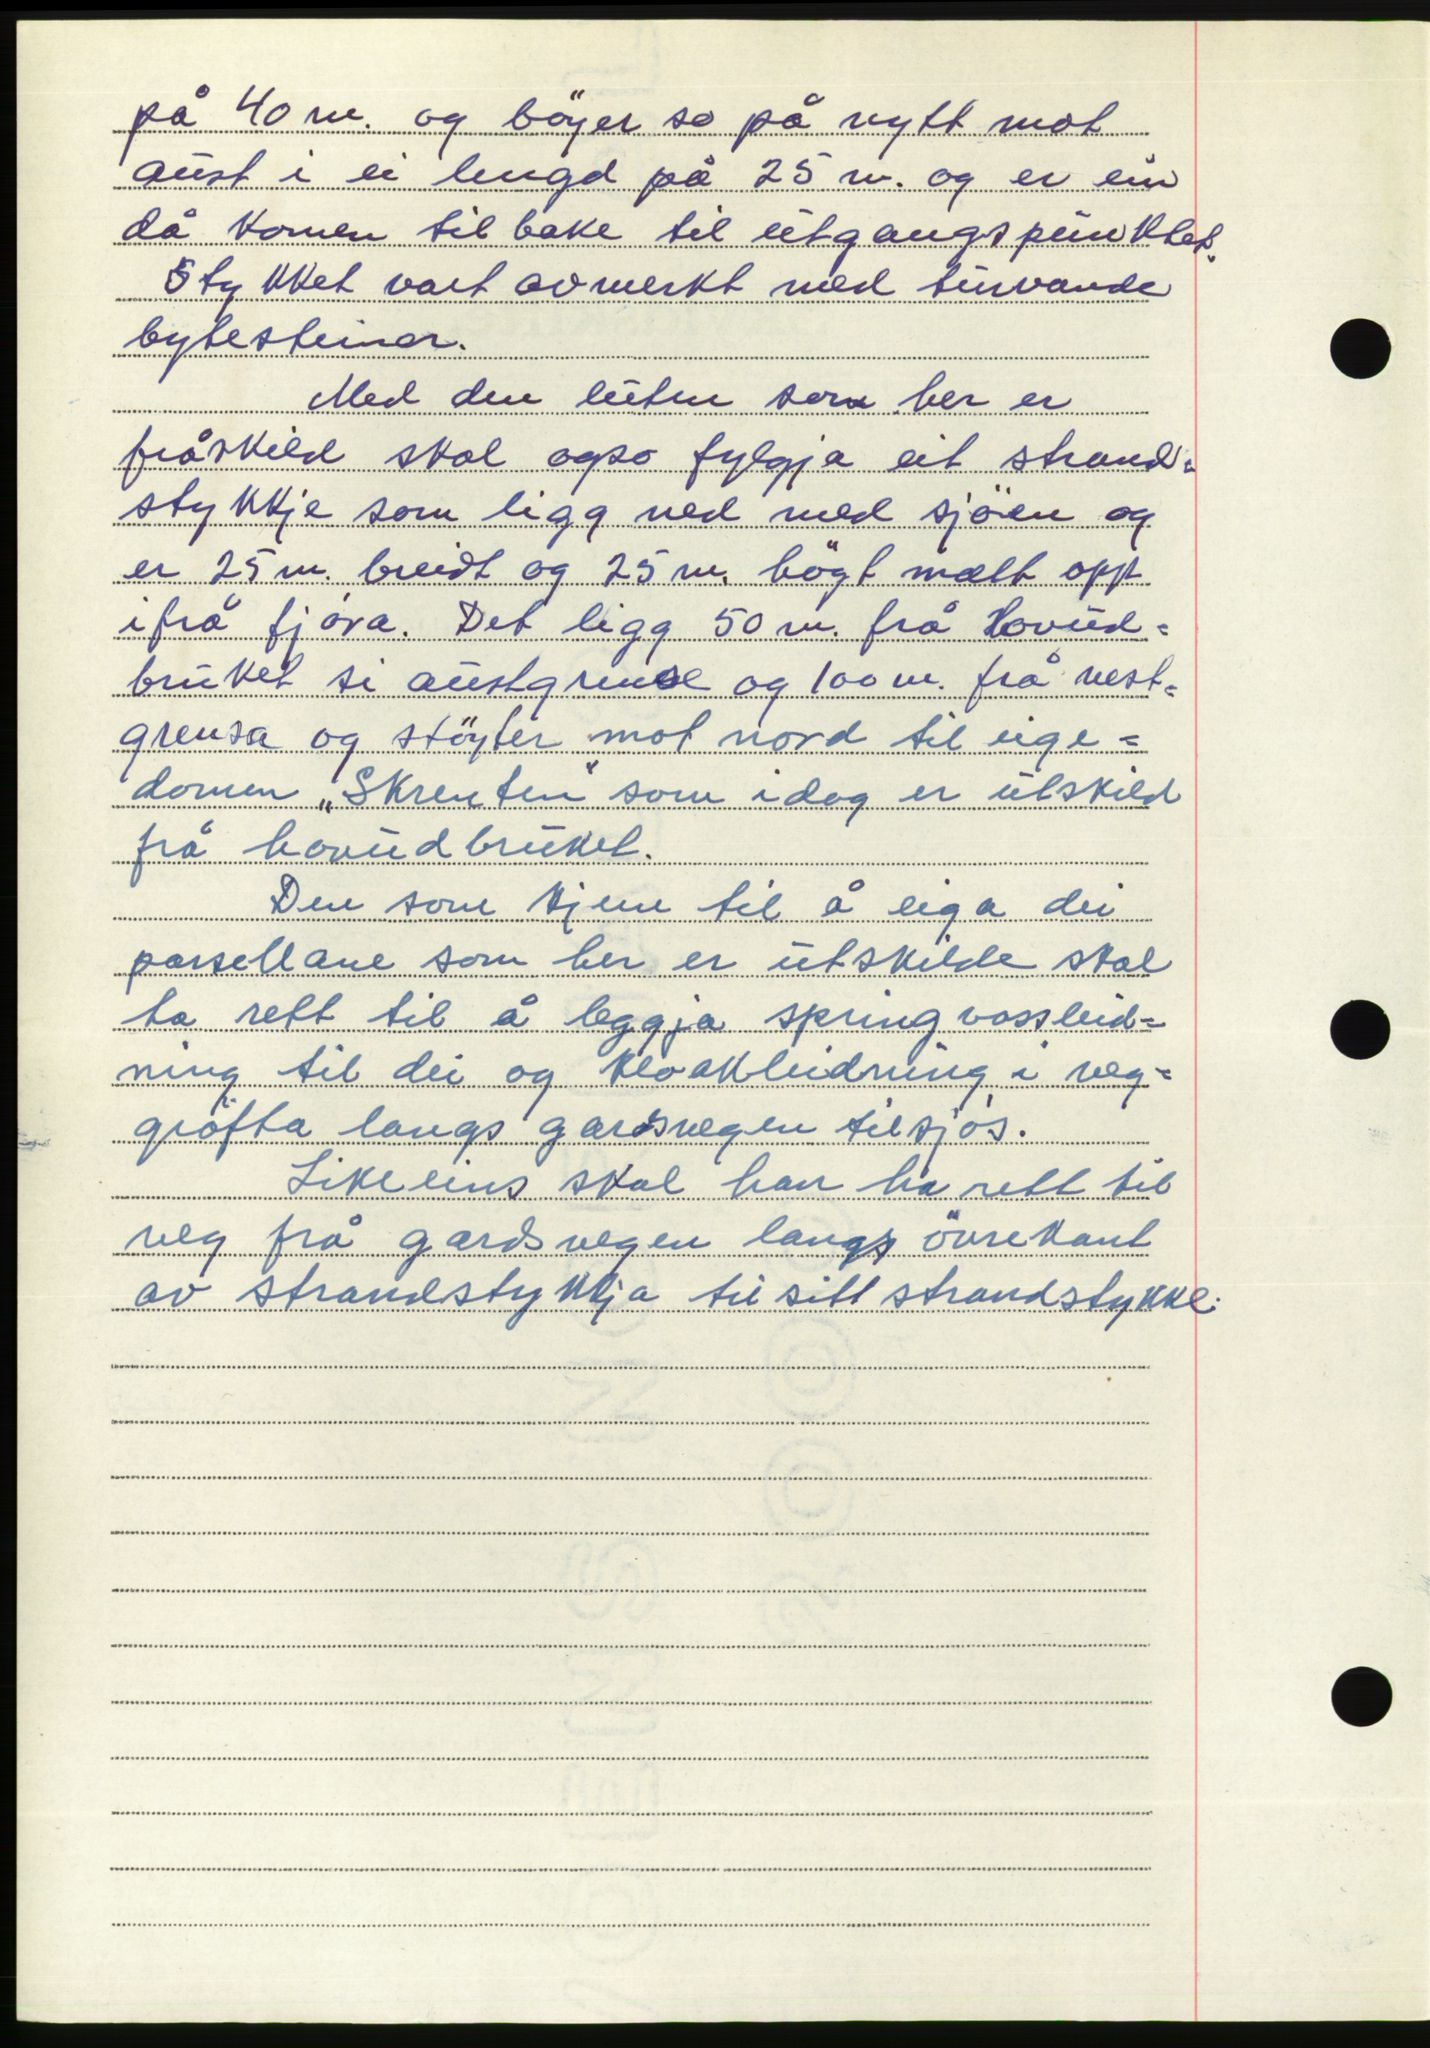 på 40 m. og böyer so på nytt mot
aust i ei lengd på 25 m. og er ein
då komen tilbake til utgangspunktet.
Stykket vart avmerkt med turvande
bytesteinar.
Med den luten som her er
fråskild skal ogso fylgja eit strand=
stykkje som ligg ned med sjöen og
er 25 m. breidt og 25 m. högt mælt opp
ifrå fjöra. Det ligg 50 m. frå Hovud=
bruket si austgrense og 100 m. frå vest=
grensa og stöyter mot nord til eige=
domen „Skrenten“ som idag er utskild
frå hovudbruket.
Den som kjem til å eiga dei
parsellane som her er utskilde skal
ha rett til å leggja springvassleid=
ning til dei og kloakleidning i veg=
gröfta langs gardsvegen til sjös.
Likeeins skal han ha rett til
veg frå gardsvegen langs övrekant
av strandstykkja til sitt strandstykke.